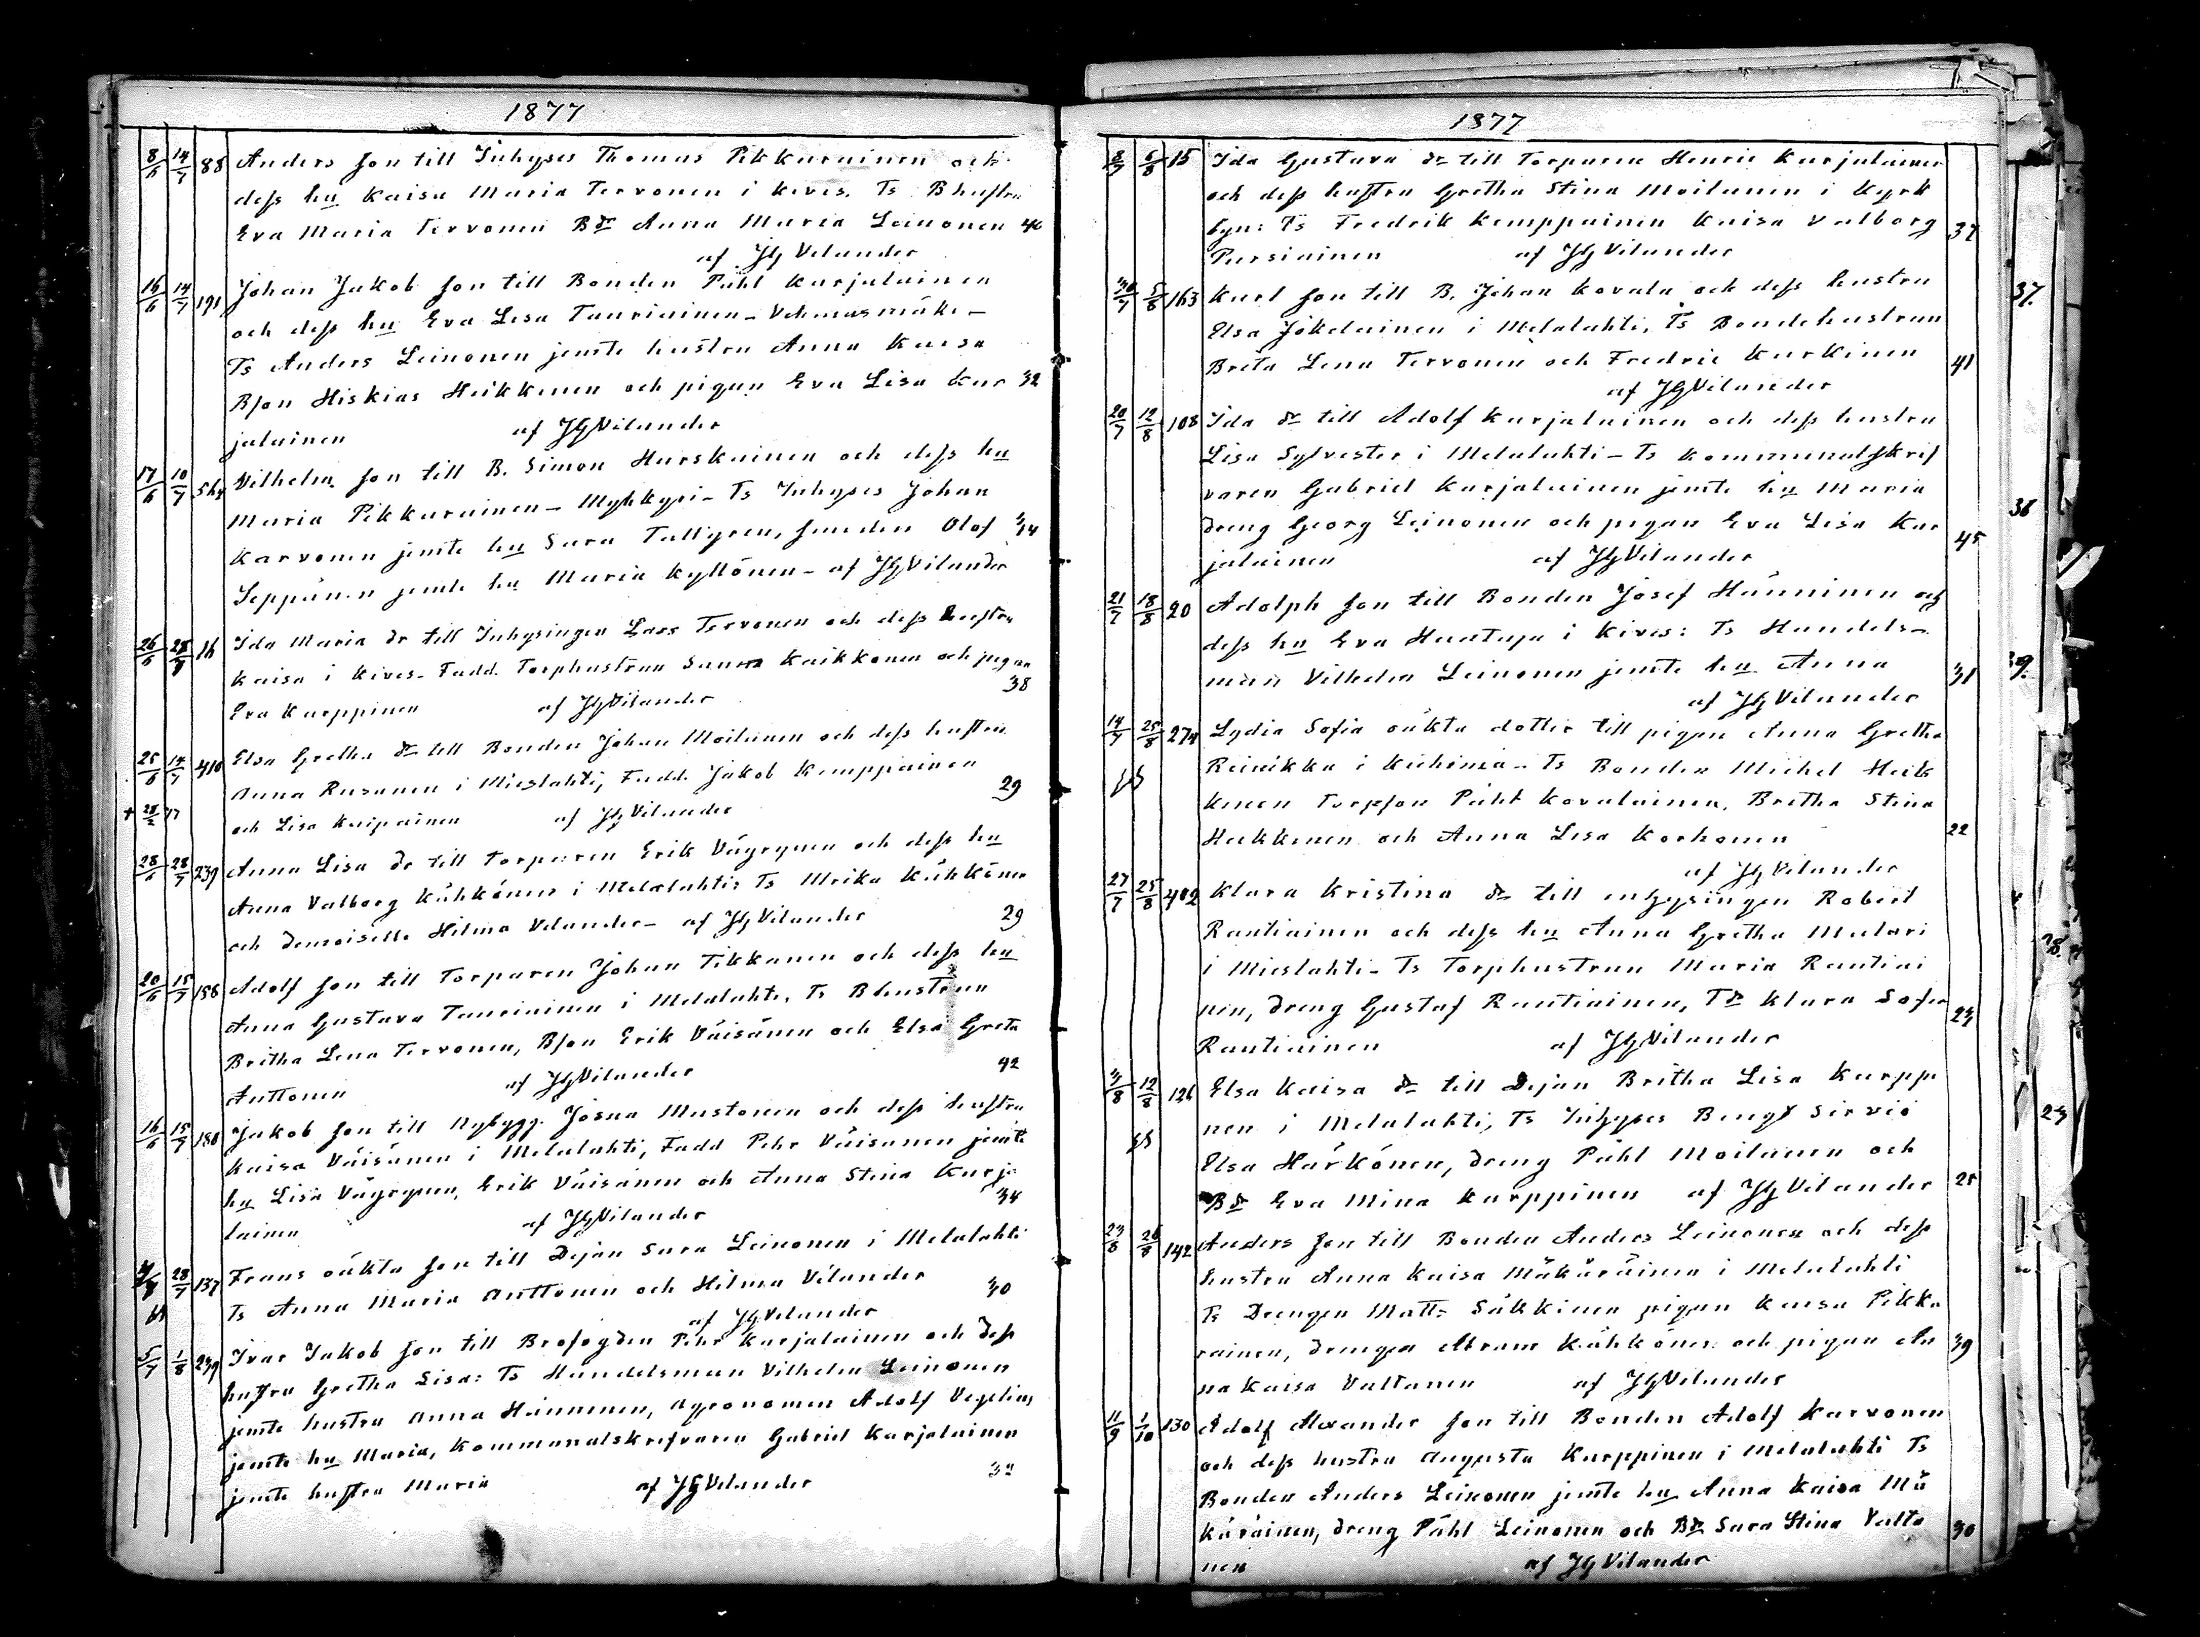 1877
8/6 14/7 88 Anders son till Inhyses Thomas Pikkarainen och
dess hu Kaisa Maria Tervonen i Kives. Ts Bhustru
Eva Maria Tervonen Bdr Anna Maria Leinonen 40
af JG Vilander
16/6 14/7 191 Johan Jakob son till Bonden Påhl Karjalainen
och dess hu Eva Lisa Tauriainen - Vehmasmäki -
Ts Anders Leinonen jemte hustru Anna Kaisa
Bson Hiskias Heikkinen och pigan Eva Lisa Kar 32
jalainen af JG Vilander
17/6 10/7 564 Vilhelm son till B. Simon Hurskainen och dess hu
Maria Pikkarainen - Myhkyri - Ts Inhyses Johan
Karvonen jemte hu Sara Tallgren, smeden Olof 34
Seppänen jemte hu Maria Kyllönen - af JG Vilander
26/6 28/7 16 Ida Maria dr till Inhysingen Lars Tervonen och dess hustru
Kaisa i Kives. Fadd. Torphustrun Sanna Kaikkonen och pigan
Eva Karppinen af JG Vilander 38
25/6 14/7 410 Elsa Gretha dr till Bonden Johan Moilanen och dess hustru
Anna Rusanen i Mieslahti, Fadd. Jakob Kemppainen
† 28/2 77 och Lisa Kaipainen af JG Vilander 29
28/6 28/7 239 Anna Lisa dr till Torparen Erik Väyrynen och dess hu
Anna Valborg Kähkönen i Melalahti: Ts Ulrika Kähkönen
och demoiselle Hilma Vilander - af JG Vilander 29
20/6 15/7 158 Adolf son till Torparen Johan Tikkanen och dess hu
Anna Gustava Tauriainen i Melalahti, Ts Bhustrun
Britha Lena Tervonen, Bson Erik Väisänen och Elsa Greta
Anttonen af JG Vilander 42
16/6 15/7 180 Jakob son till Nybygg. Josua Mustonen och dess hustru
Kaisa Väisänen i Melalahti, Fadd Pehr Väisänen jemte
hu Lisa Väyrynen, Erik Väisänen och Anna Stina Karja
lainen af JG Vilander 34
28/7 137 Frans oäkta son till Dejan Sara Leinonen i Melalahti
Ts Anna Maria Anttonen och Hilma Vilander 30
af JG Vilander
5/7 1/8 239 Ivar Jakob son till Brofogden Pehr Karjalainen och dess
hustru Gretha Lisa: Ts Handelsman Vilhelm Leinonen
jemte hustru Anna Hänninen, Agronomen Adolf Vegelius
jemte hu Maria, Kommunalskrifvaren Gabriel Karjalainen
jemte hustru Maria af JG Vilander
1877
6/8 15 Ida Gustava dr till Torparen Henric Karjalainen
och dess hustru Gretha Stina Moilanen i Kyrk
byn: Ts Fredrik Kemppainen Kaisa Valborg 37
Pursiainen af JG Vilander
30/7 5/8 163 Karl son till B. Johan Kovala och dess hustru
Elsa Jokelainen i Melalahti, Ts Bondehustrun
Brita Lena Tervonen och Fredric Kurkinen 41
af JG Vilander
20/7 12/8 108 Ida dr till Adolf Karjalainen och dess hustru
Lisa Sylvester i Melalahti - Ts Kommunalskrif
varen Gabriel Karjalainen jemte hu Maria
dreng Georg Leinonen och pigan Eva Lisa Kar 45
jalainen af JG Vilander
21/7 18/8 20 Adolph son till Bonden Josef Hänninen och
dess hu Eva Huotaja i Kives: Ts Handels-
man Vilhelm Leinonen jemte hu Anna 31
af JG Vilander
14/7 25/8 274 Lydia Sofia oäkta dotter till pigan Anna Gretha
Reinikka i Kuhinia - Ts Bonden Michel Heik
kinen Torpson Påhl Kovalainen, Britha Stina
Heikkinen och Anna Lisa Korhonen 22
af JG Vilander
27/7 25/8 402 Klara Kristina dr till inhysingen Robert
Rautiainen och dess hu Anna Gretha Mulari
i Mieslahti - Ts Torphustrun Maria Rautiai
nen, dreng Gustaf Rautiainen, Tdr Klara Sofia 23
Rautiainen af JG Vilander
3/8 12/8 126 Elsa Kaisa dr till Dejan Britha Lisa Karppi
nen i Melalahti, Ts Inhyses Bengt Sirviö
Elsa Härkönen, dreng Påhl Moilanen och
Bdr Eva Mina Karppinen af JG Vilander 25
23/8 26/8 142 Anders son till Bonden Anders Leinonen och dess
hustru Anna Kaisa Mäkäräinen i Melalahti
Ts Drengen Matts Säkkinen pigan Kaisa Pikka
rainen, drengen Abram Kähkönen och pigan An 39
na Kaisa Valtanen af JG Vilander
11/9 1/10 130 Adolf Alexander son till Bonden Adolf Karvonen
och dess hustru Augusta Karppinen i Melalahti Ts
Bonden Anders Leinonen jemte hu Anna Kaisa Mä
käräinen, dreng Påhl Leinonen och Bdr Sara Stina Valta 30
nen af JG Vilander
37.
38
39.
28.
23